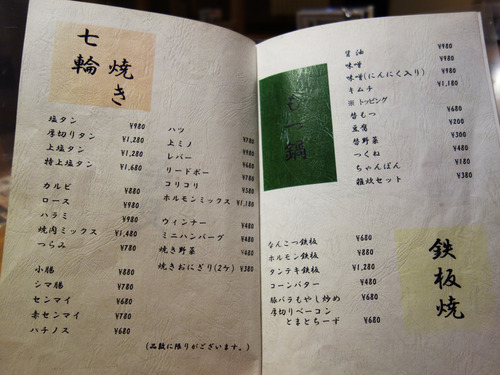 七輪
焼き
塩タン ¥980
厚切りタン ¥1,280
上塩タン ¥1,280
特上塩タン ¥1,680
カルビ ¥880
ロース ¥980
ハラミ ¥980
焼肉ミックス ¥1,480
つらみ ¥780
小腸 ¥680
シマ腸 ¥780
センマイ ¥680
赤センマイ ¥780
ハチノス ¥680
ハツ
上ミノ ¥980
レバー
リードボー ¥780
コリコリ
ホルモンミックス ¥1,180
ウィンナー ¥480
ミニハンバーグ ¥480
焼き野菜 ¥480
焼きおにぎり(2ケ) ¥380
(品数に限りがございます。)
もつ鍋
醤油 ¥980
味噌 ¥980
味噌(にんにく入り) ¥980
キムチ ¥1,180
※トッピング
替もつ ¥680
豆腐 ¥200
替野菜 ¥300
つくね ¥480
ちゃんぽん ¥180
雑炊セット ¥380
鉄板焼
なんこつ鉄板 ¥680
ホルモン鉄板 ¥880
タンテキ鉄板 ¥1,280
コーンバター ¥480
豚バラもやし炒め ¥680
厚切りベーコン
とまとちーず ¥680